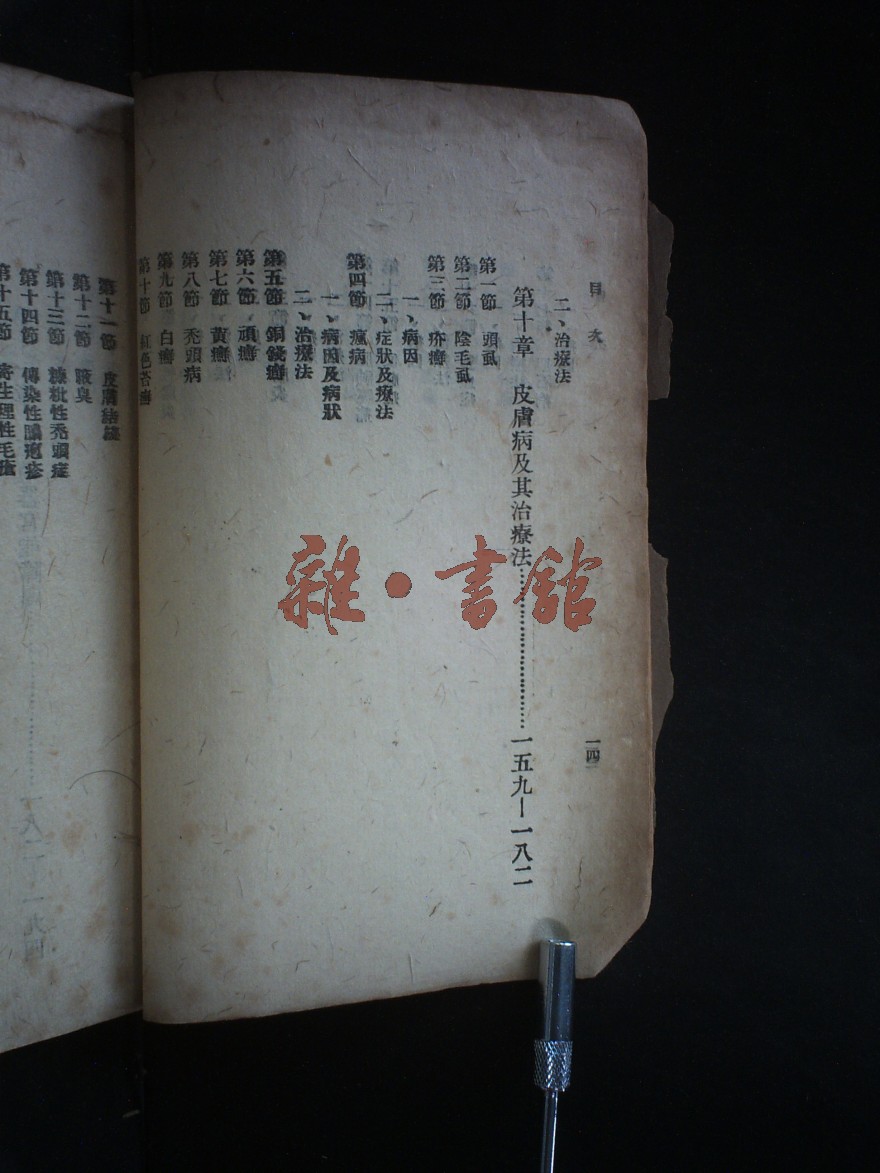 目次
一四
二、治療法
第十章　皮膚病及其治療法…………………一五九—一八二
第一節　頭虱
第二節　陰毛虱
第三節　疥癬
一、病因
二、症狀及療法
第四節　癘病
一、病因及病狀
二、治療法
第五節　銅錢癬
第六節　頑癬
第七節　黃癬
第八節　禿頭病
第九節　白癬
第十節　紅色苔癬
第十一節　皮膚結核
第十二節　腋臭
第十三節　糠粃性禿頭症
第十四節　傳染性膿疱疹
第十五節　寄生理性毛瘡
雜·書館